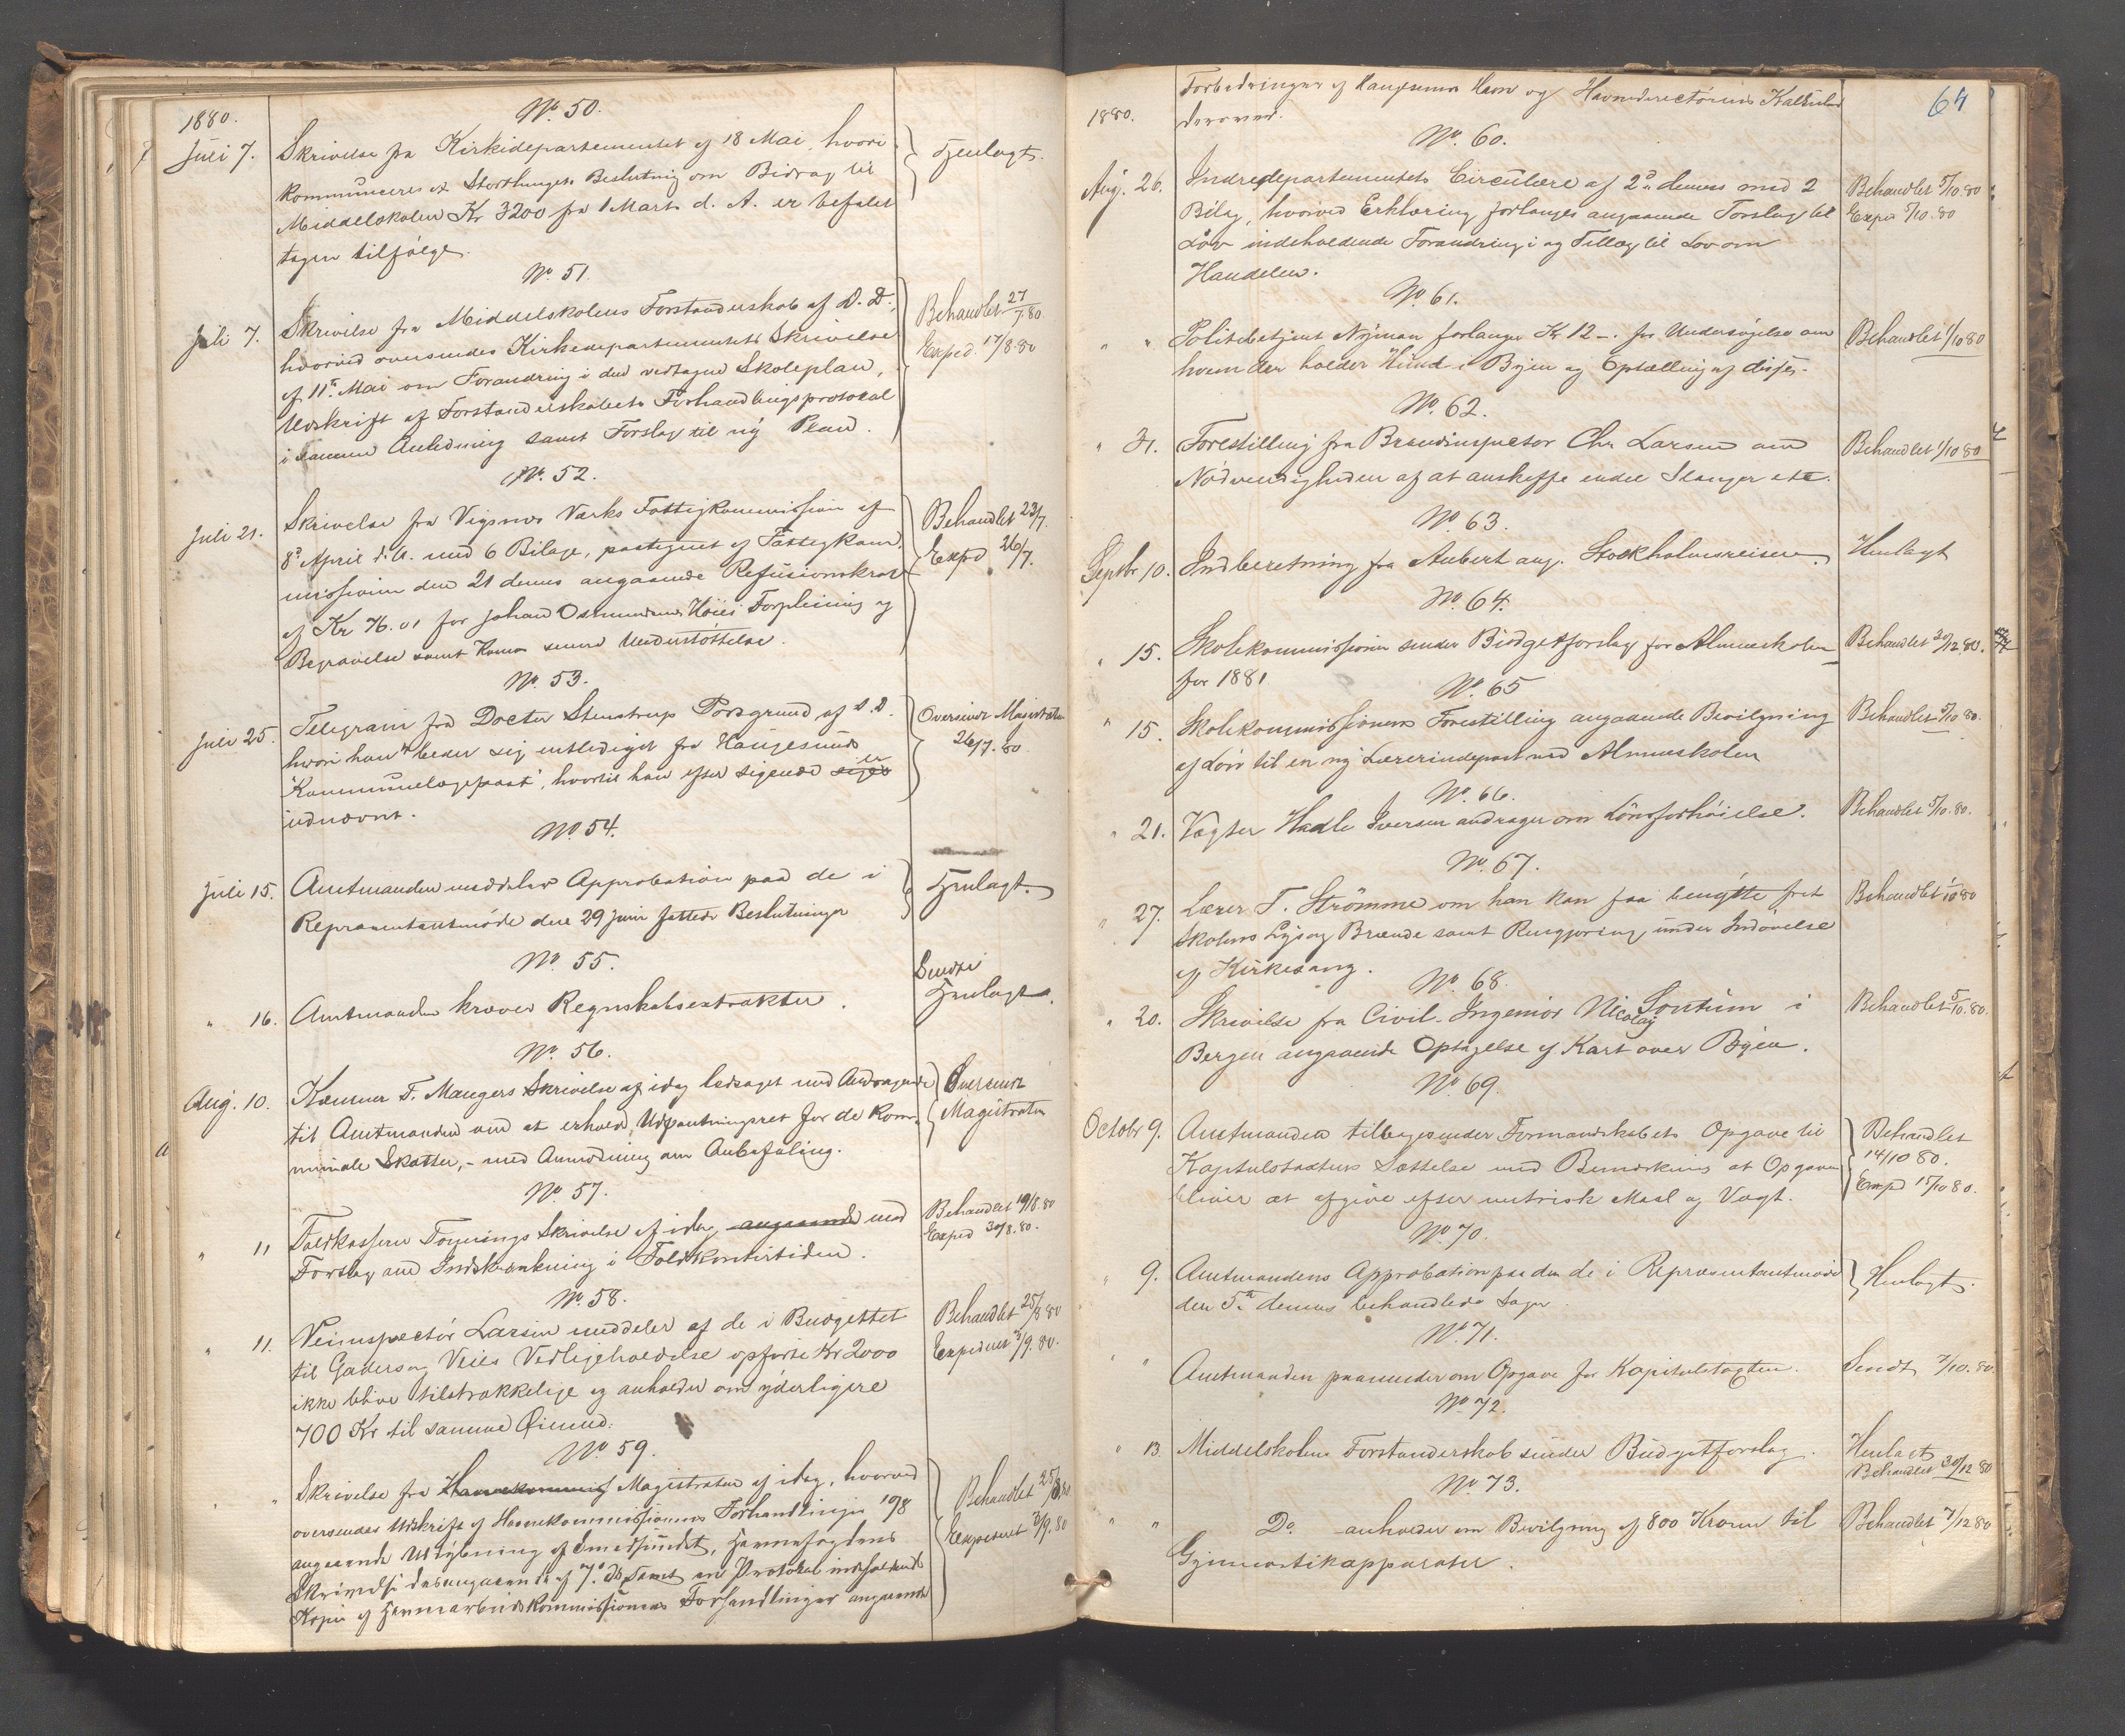 1880.
No. 50.
Juli 7. Skrivelse fra Kirkedepartementet af 18 Mai, hvori Henlagt.
kommuniceres at Storthingets Beslutning om Bidrag til
Middelskolen Kr 3200 fra 1 Marts d. A. er befalet
tagen tilfølge.
No. 51.
Juli 7. Skrivelse fra Middelskolens Forstanderskab af D. D. Behandlet 27/7 80
hvorved oversendes Kirkedepartementets Skrivelse Exped. 17/8 80
af 11te Mai om Forandring i den vedtagne Skoleplan,
Udskrift af Forstanderskabets Forhandlingsprotokol
i samme Anledning samt Forslag til ny Plan.
No. 52.
Juli 21. Skrivelse fra Vigsnes Værks Fattigkommission af Behandlet 23/7.
8de April d. A. med 6 Bilage, paategnet af Fattigkom- Exped 26/7.
missionen den 21 dennes angaaende Refusionskrav
af Kr 76.01 for Johan Osmundsens Forpleining og
Begravelse samt Kones senere Understøttelse.
No. 53.
Juli 25. Telegram fra Docter Stenstrup Porsgrund af d. D. Oversendt Magistraten
hvori han beder sig entlediget fra Haugesunds 26/7. 80.
"Kommunelægepost", hvortil han efter sigende siges er
udnævnt.
No. 54.
Juli 15. Amtmanden meddeler Approbation paa de i Henlagt.
Representantmøde den 29 Juni fattede Beslutninger
No. 55.
" 16. Amtmanden kræver Regnskabsextrakter. Sendt Henlagt.
No. 56.
Aug. 10. Kæmner T. Maugers Skrivelse af idag ledsaget med Andragende Oversendt
til Amtmanden om at erholde Udpantningsret for de kom- Magistraten
munale Skatter, - med Anmodning om Anbefaling.
No. 57.
" 11 Toldkasserer Skrivelse af idag angaaende med Behandlet 19/8.80
Forslag om Indskrænkning i Toldkontortiden. Exped 30/8.80.
No. 58.
" 11. Veiinspectør Larsen meddeler af de i Budgettet Behandlet 25/8 80
til Gaders og Veies Vedligeholdelse opførte Kr 2000 Expederet 3/9.80.
ikke blive tilstrækkelige og anholder om yderligere
700 Kr til samme Øiemed.
No. 59.
" " Skrivelse fra Havnekommis Magistraten af idag, hvorved Behandlet 25/8 80
oversendes Udskrift af Havnekommissionens Forhandlinger 10/8 Expederet 3/9.80
angaaende Uddybning af Smedsundet, Havnefogdens
Skrivelse desangaaende af 7de ds samt en Protokol indholdende
Kopie af Havnearbeidskommissionens Forhandlinger angaaende
64
1880. Forbedringer af Haugesunds Havn og Havnedirectørens Kalkuler
derover.
No. 60.
Aug. 26. Indredepartementets Circulære af 2den dennes med 2 Behandlet 5/10 80
Bilag, hvorved Erklæring forlanges angaaende Forslag til Exped 5/10.80
Lov indeholdende Forandring i og Tillæg til Lov om
Handelen.
No. 61.
" " Politibetjent Nyman forlanger Kr 12 -. for Undersøgelse om Behandlet 1/10 80
hvem der holder Hund i Byen og Optælling af disse.
No. 62.
" 31. Forestilling fra Brandinspector Chr Larsen om Behandlet 1/10 80
Nødvendigheden af at anskaffe endel Slanger etc.
No. 63.
Septbr 10. Indberetning fra Aubert ang. Stockholmsreisen. Henlagt
No. 64.
" 15. Skolekommissionen sender Budgetforslag for Almueskolen Behandlet 30/12 80.
for 1881
No. 65
" 15. Skolekommissionens Forestilling angaaende Bevilgning Behandlet 5/10 80.
af Løn til en ny Lærerindepost ved Almueskolen
No. 66.
" 21. Vægter Hadle Iversen andrager om Lønsforhøielse. Behandlet 5/10.80.
No. 67.
" 27. Lærer T. Strømme om han kan faa benytte frit Behandlet 1/10 80
Skolens Lys og Brænde samt Rengjøring under Indøvelse
af Kirkesang.
No. 68.
" 20. Skrivelse fra Civil-Ingeniør Nicolay Sontum i Behandlet 5/10.80.
Bergen angaaende Optagelse af Kart over Byen.
No. 69.
Octobr 9. Amtmanden tilbagesender Formandskabets Opgave til Behandlet
Kapitelstaxters Sættelse med Bemærkning at Opgaven 14/10 80.
bliver at afgive efter metrisk Maal og Vægt. Exped 15/10 80.
No. 70.
" 9. Amtmandens Approbation paa de de i Repræsentantmøde Henlagt.
den 5te dennes behandlede Sager.
No. 71.
" " Amtmanden paaminder om Opgave for Kapitelstaxten. Sendt 7/10.80.
No. 72.
" 13. Middelskolens Forstanderskab sender Budgetforslag. Henlagt
Behandlet 30/12 80
No. 73.
" " Do. anholder om Bevilgning af 800 Kroner til Behandlet 7/12 80
Gymnastikapparater.